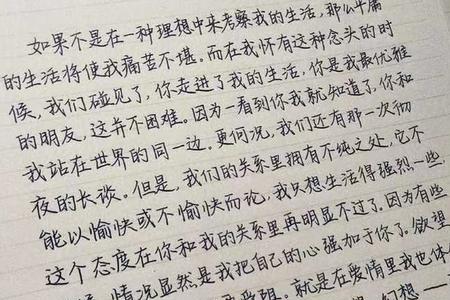 如果不是在一种理想中来考察我的生活,那么平庸
的生活将使我痛苦不堪。而在我怀有这种念头的时
候,我们碰见了,你走进了我的生活,你是我最优雅
的朋友,这并不困难。因为一看到你我就知道了,你和
我站在世界的同一边,更何况,我们还有那一次彻
夜的长谈。但是,我们的关系里拥有不纯之处,它不
能以愉快或不愉快而论,我只想生活得强烈一些,
这个态度在你和我的关系里再明显不过了。因为有些
情况显然是我把自己的心强加于你了。欲望
就是在爱情里我也体
幻想——